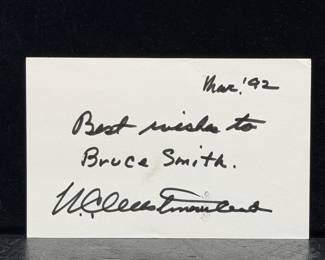 Mar. '92
Best wishes to
Bruce Smith.